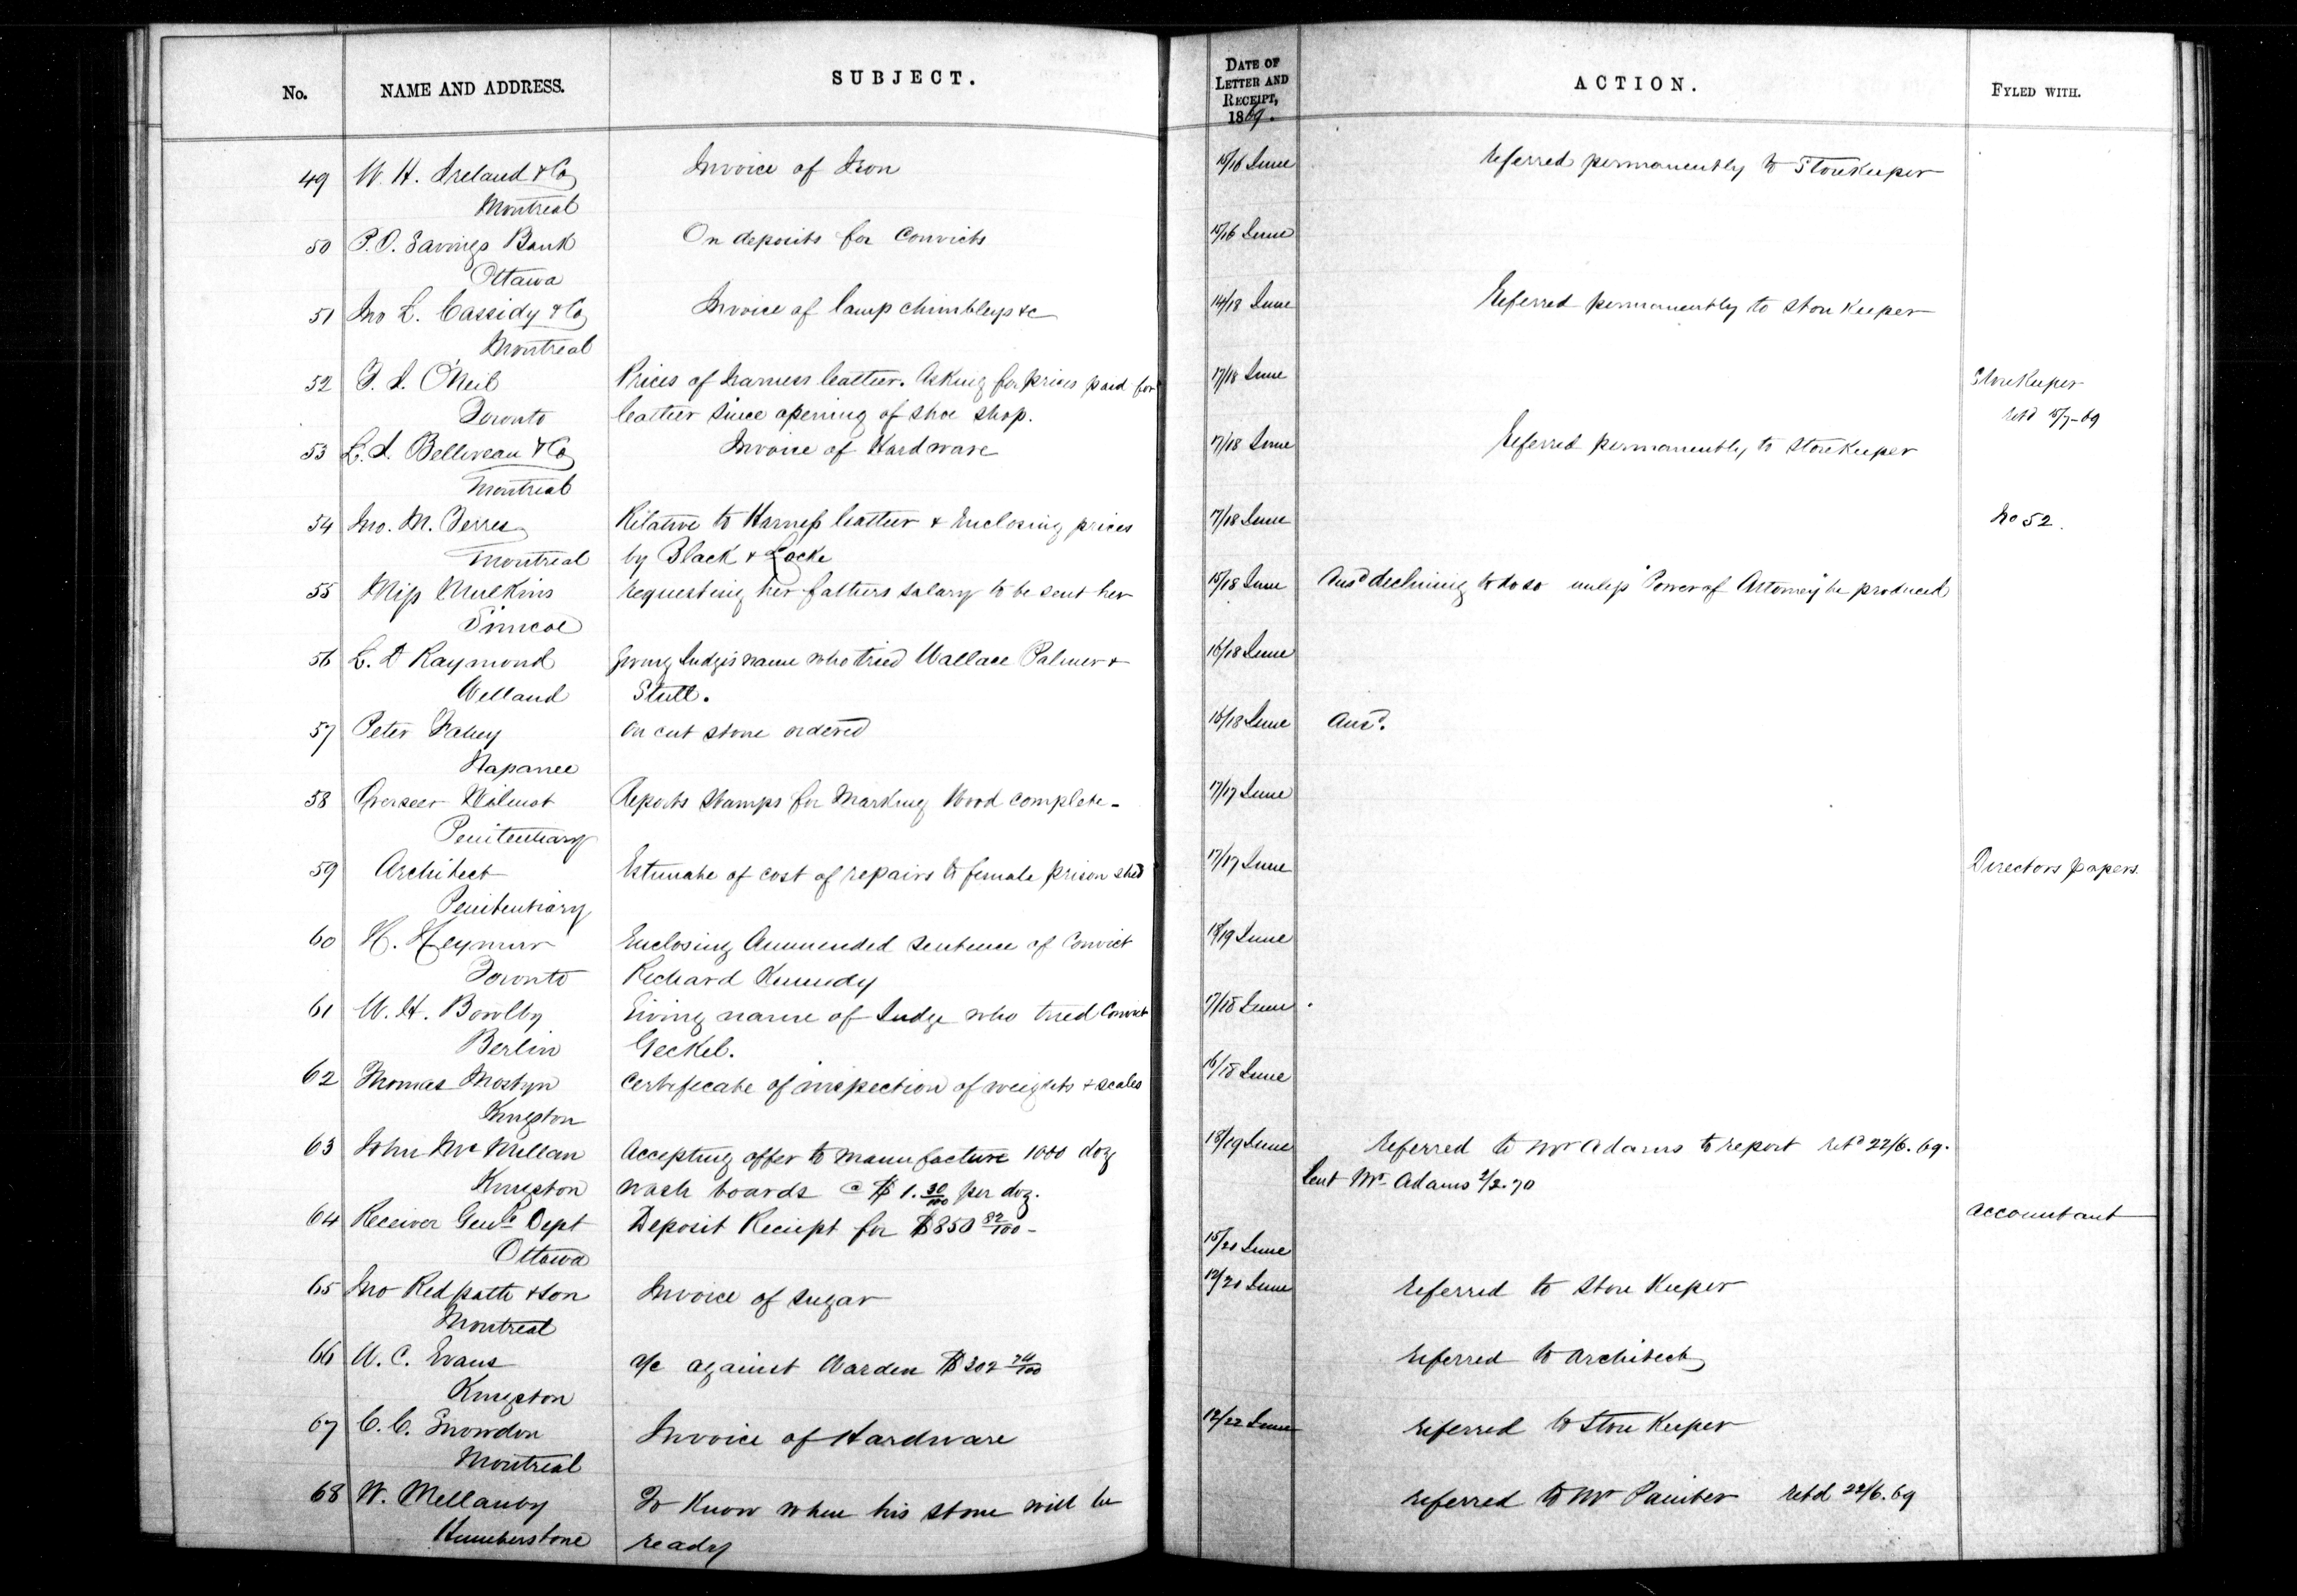 No. NAME AND ADDRESS. SUBJECT. DATE OF LETTER AND RECEIPT, 1869. ACTION. FYLED WITH.
49 W. H. Ireland & Co Invoice of Iron 15/16 June Referred permanently to Storekeeper
Montreal
50 P.O. Savings Bank On deposits for Convicts 15/16 June
Ottawa
51 Jno L. Cassidy & Co Invoice of lamp chimbleys &c 14/18 June Referred permanently to Store Keeper
Montreal
52 O'Neil Prices of harness leather. Asking for prices paid for 17/18 June Storekeeper
Toronto leather since opening of shoe shop. retd 15/7-69
53 L. J. Belliveau & Co Invoice of Hardware 17/18 June Referred permanently to Storekeeper
Montreal
54 Jno. M. Relative to Harness leather & Enclosing prices 17/18 June No 52.
Montreal by Black & Locke
55 Miss Mulkins requesting her fathers salary to be sent her 15/18 June Ansd declining to do so unless "Power of Attorney" be produced
Simcoe
56 L. D Raymond giving Judges name who tried Wallace Palmer & 16/18 June
Welland Stull.
57 Peter Fahey On cut stone ordered 16/18 June Ansd.
Napanee
58 Overseer Wilmot Reports Stamps for Marking Wood complete - 17/17 June
Penitentiary
59 Architect Estimate of cost of repairs to female prison shed 17/17 June Directors papers.
Penitentiary
60 H. Enclosing Ammended sentence of Convict 18/19 June
Toronto Richard Kennedy
61 W. H. Bowlby Giving name of Judge who tried Convict 17/18 June
Berlin Geckel.
62 Thomas Mostyn Certificate of inspection of weights & scales 16/18 June
Kingston
63 John McMillan Accepting offer to manufacture 1000 doz 18/19 June Referred to Mr Adams to report retd 22/6.69.
Kingston wash boards @ $1.30/100 per doz. Sent Mr Adams 2/2.70
64 Receiver Genls Dept Deposit Reciept for $850 82/100 - accountant
Ottawa 15/20 June
65 Jno Redpath & Son Invoice of sugar 12/20 June referred to Store Keeper
Montreal
66 W. C. Evans a/c against Warden $302 74/100 referred to Architect
Kingston
67 C. C. Snowdon Invoice of Hardware 12/22 June referred to Store Keeper
Montreal
68 W. Mellanby To Know when his stone will be referred to Mr Painter retd 22/6.69
Humberstone ready